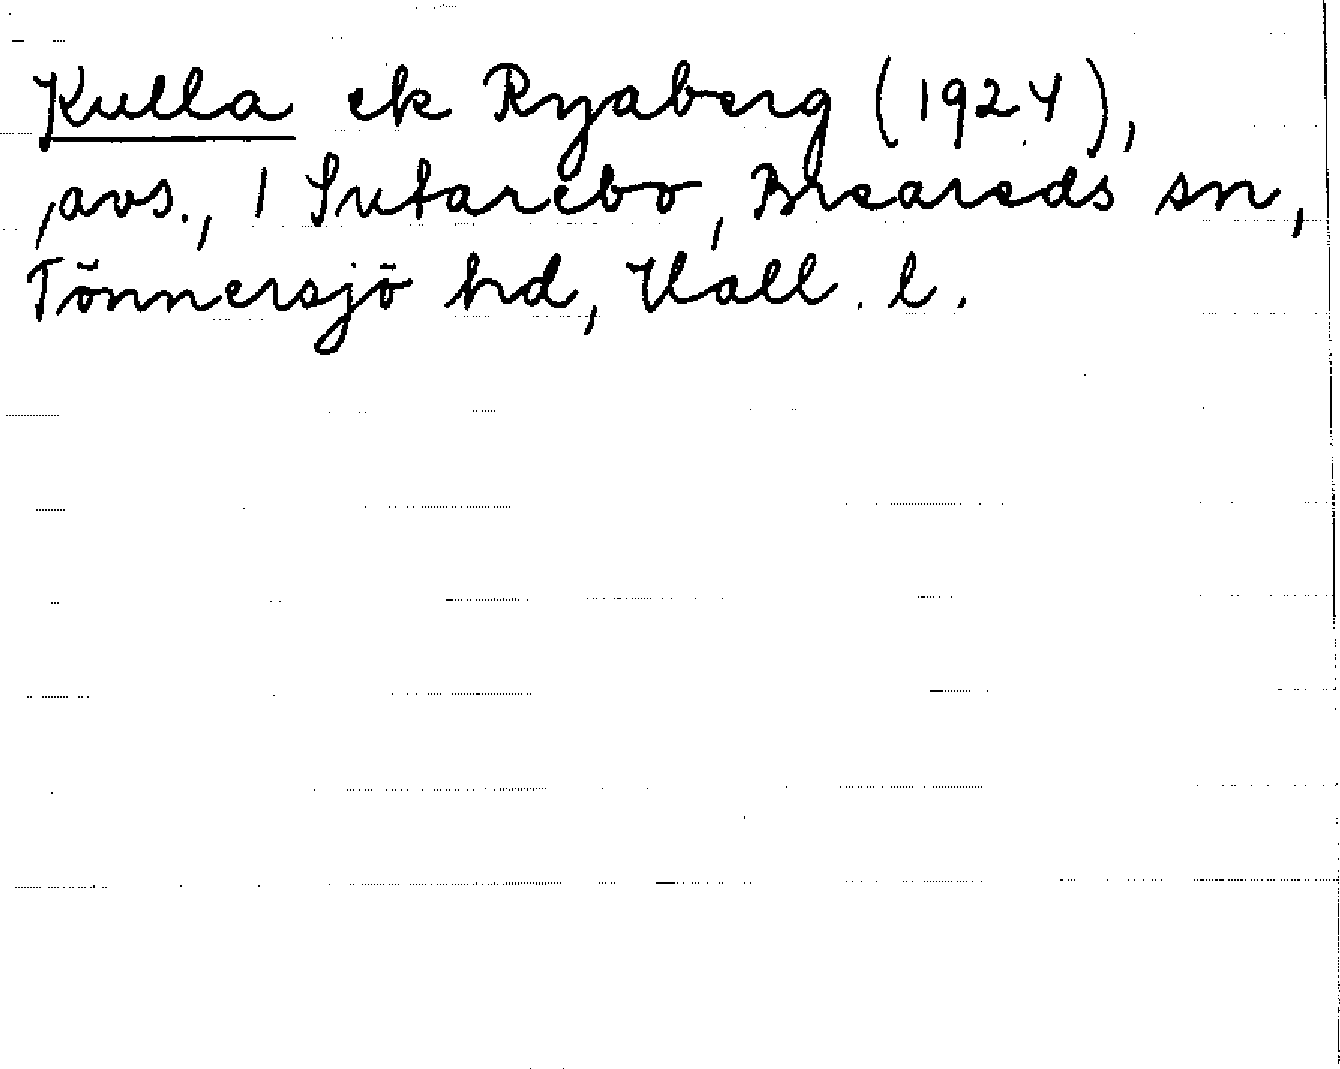 Kulla ek Ryaberg (1924),
avs., 1 Sutarebo, Breareds sn,
Tönnersjö hd, Hall. l.